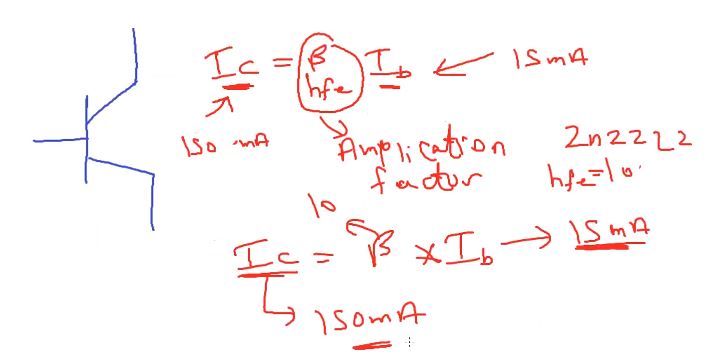 Ic = β Ib ← 15mA
hfe
150 mA
Amplication
factor
2n2222
hfe=10
10
Ic = β × Ib → 15mA
150mA